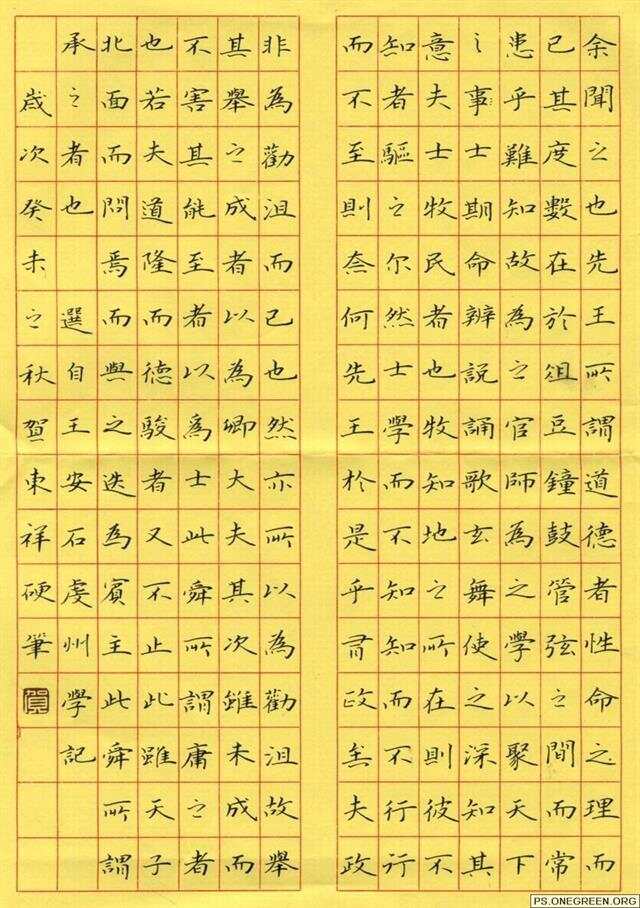 余聞之也先王所謂道德者性命之理而
已其度數在於俎豆鐘鼓管弦之間而常
患乎難知故為之官師為之學以聚天下
之事士期命辨說誦歌玄舞使之深知其
意夫士牧民者也牧知地之所在則彼不
知者驅之尔然士學而不知知而不行行
而不至則奈何先王於是乎有政矣夫政
非為勸沮而已也然亦所以為勸沮故舉
其舉之成者以為卿大夫其次雖未成而
不害其能至者以為士此舜所謂庸之者
也若夫道隆而德駿者又不止此雖天子
北面而問焉而與之迭為賓主此舜所謂
承之者也 選自王安石虔州學記
歲次癸未之秋賀東祥硬筆
賀
PS.ONEGREEN.ORG